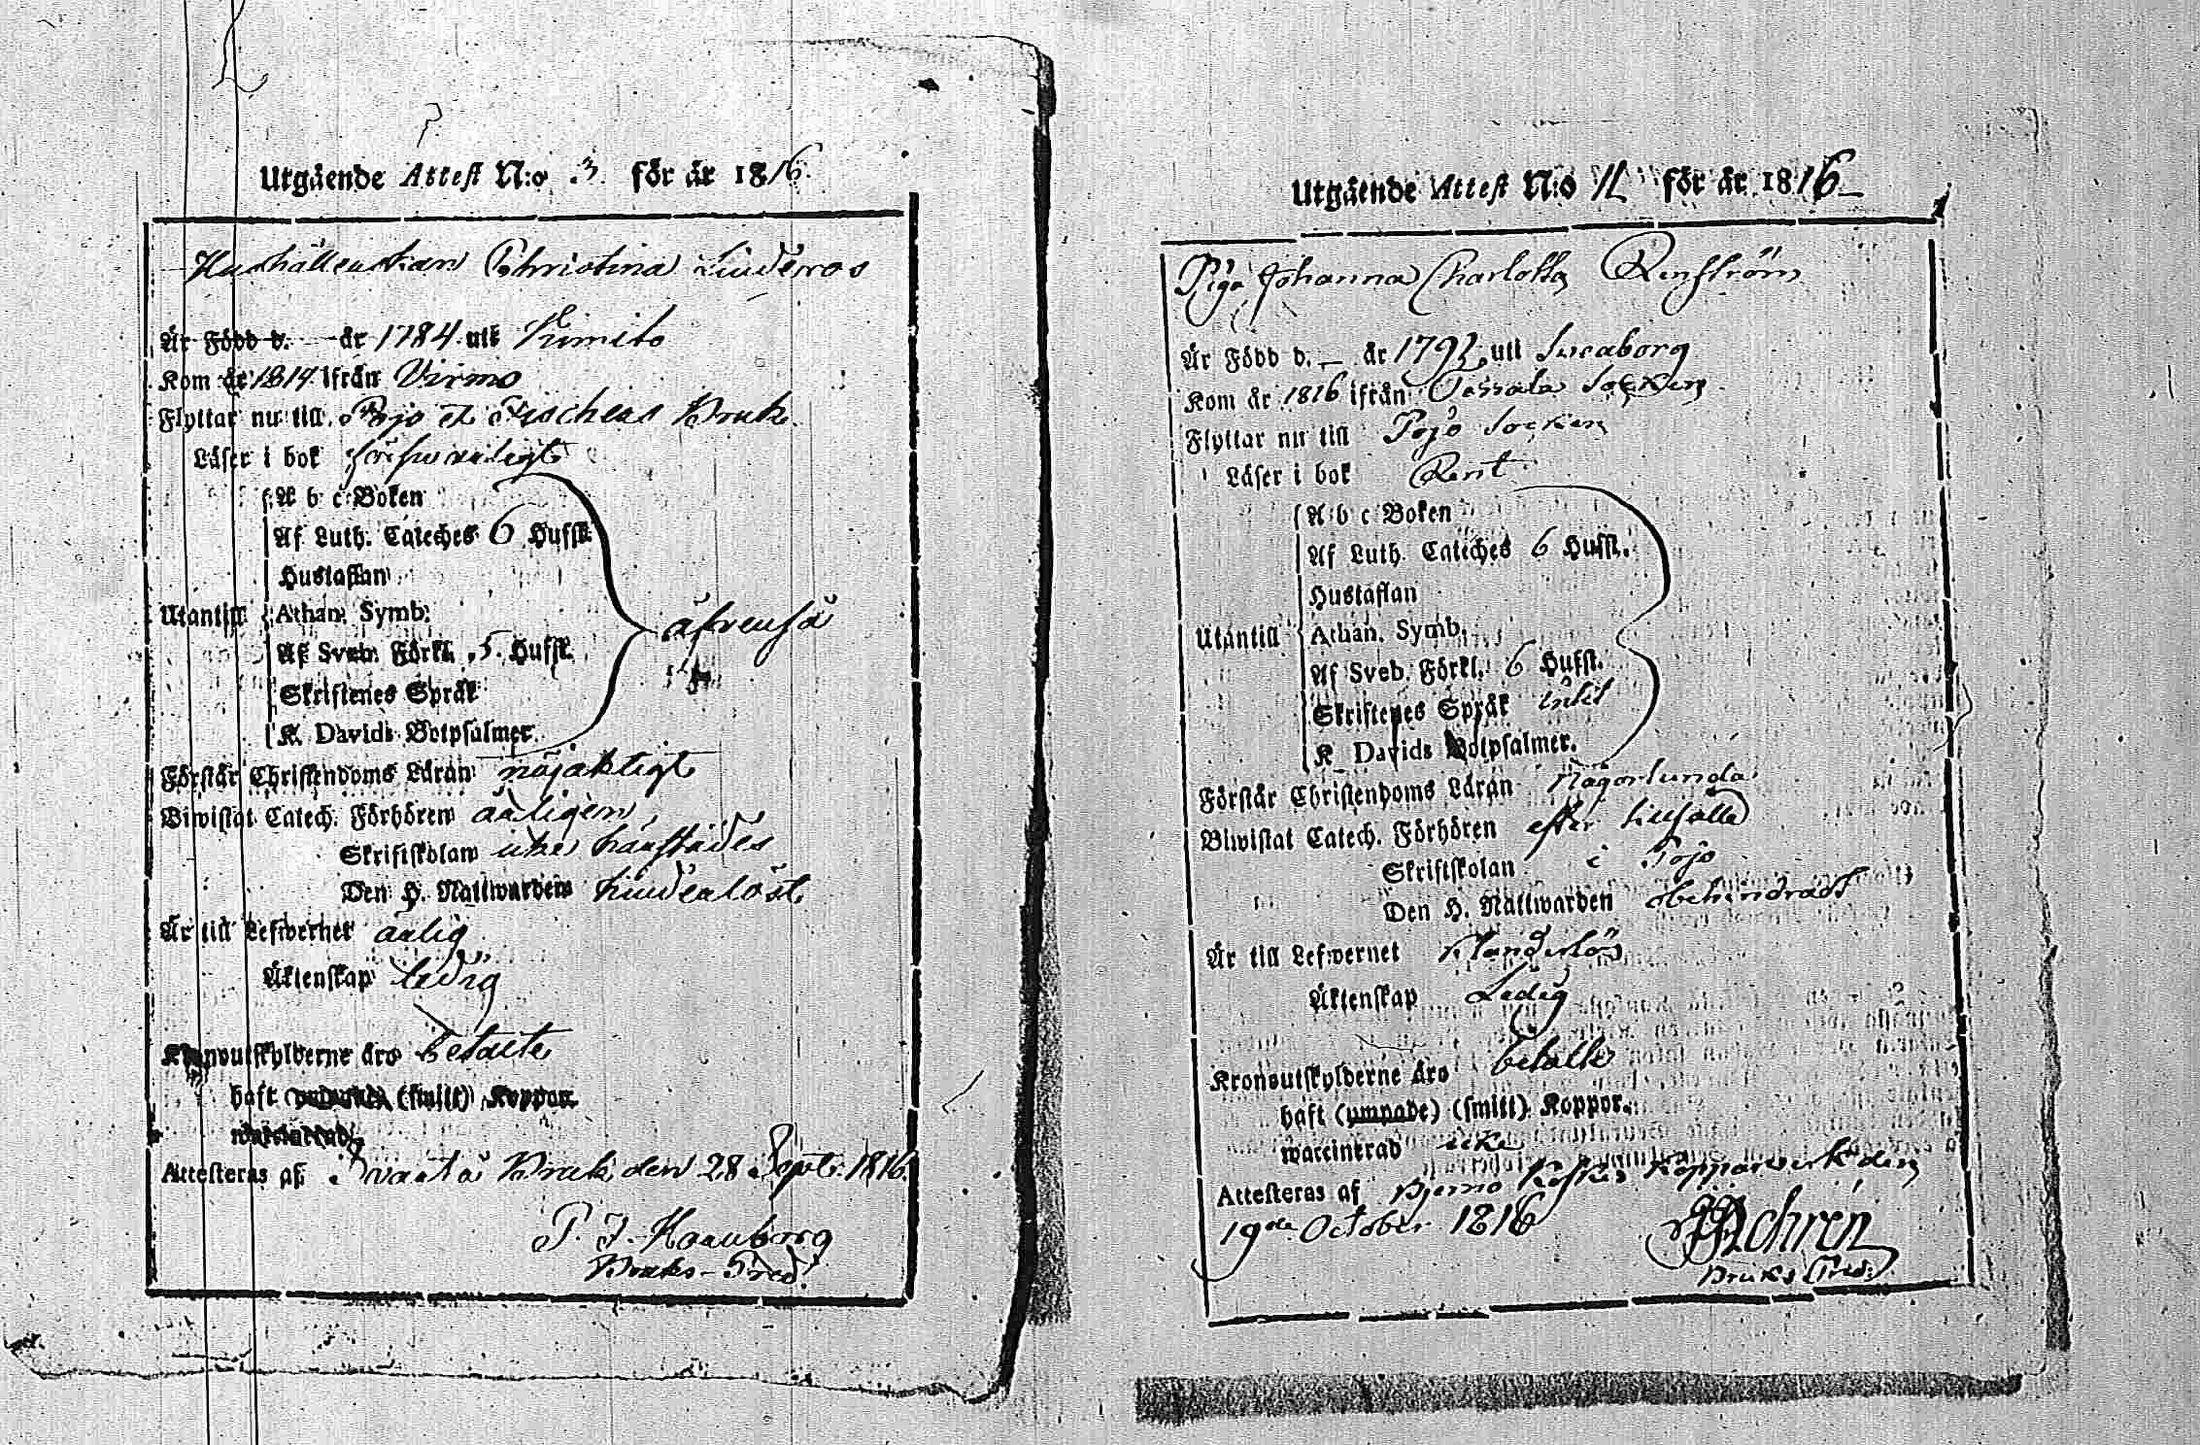 Utgående Attest N:o 3 för år 1816.
Hushållerskan Christina Linderos
Är Född d. — år 1784 uti Kimito
Kom år 1814 ifrån Virmo
Flyttar nu till Pojo et Fischers Bruk.
Läser i bok förswarligt
A b c Boken
Af Luth. Cateches 6 Hufst.
Hustaflan
Utantill Athan. Symb.
Af Sveb. Förkl. 5. Hufst.
Skriftenes Språk
K. Davids Botpsalmer.
äfvenså
Förstår Christendoms Läran nöjaktigt
Biwistat Catech. Förhören årligen
Skriftskolan
Den H. Nattwarden
Är till Lefwernet ärlig
Äktenskap ledig
Kronoutskylderne äro betalte
haft (smitt) Koppor.
waccinerad
Attesteras af Svartå Bruk den 28 Sept. 1816.
P. J.
Bruks-Pred.
Utgående Attest N:o 11 för år 1816
Piga Johanna Charlotta Renström
Är Född d. — år 179 uti Sveaborg
Kom år 1816 ifrån Socken
Flyttar nu till Pojo Socken
Läser i bok Rent
A b c Boken
Af Luth. Cateches 6 Hufst.
Hustaflan
Utantill Athan. Symb.
Af Sveb. Förkl. 6 Hufst.
Skriftenes Språk intet
K. Davids Botpsalmer.
Förstår Christendoms Läran Någorlunda
Biwistat Catech. Förhören efter tillfälle
Skriftskolan i Pojo
Den H. Nattwarden obehindradt
Är till Lefwernet klanderlös
Äktenskap Ledig
Kronoutskylderne äro betalte
haft (ympade) (smitt) Koppor.
waccinerad icke
Attesteras af Bjerno Koskis Kopparverk den
19de October 1816
Bruks Pred.